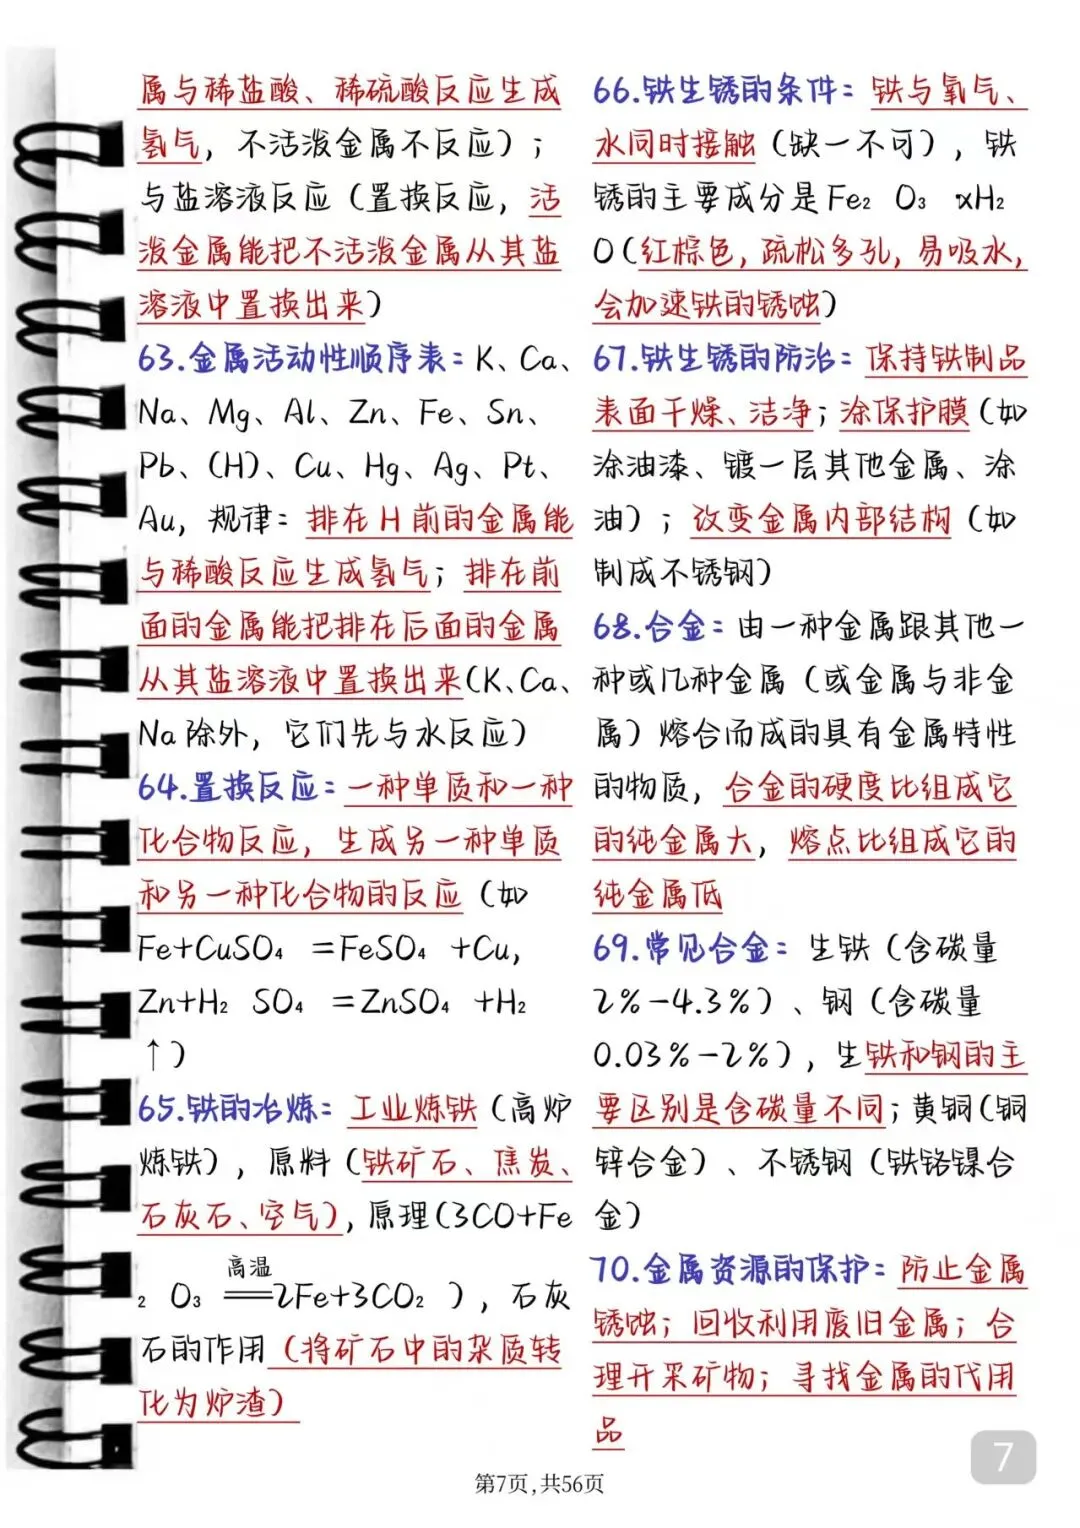 属与稀盐酸、稀硫酸反应生成
氢气，不活泼金属不反应）；
与盐溶液反应（置换反应，活
泼金属能把不活泼金属从其盐
溶液中置换出来）
63.金属活动性顺序表：K、Ca、
Na、Mg、Al、Zn、Fe、Sn、
Pb、(H)、Cu、Hg、Ag、Pt、
Au，规律：排在H前的金属能
与稀酸反应生成氢气；排在前
面的金属能把排在后面的金属
从其盐溶液中置换出来(K、Ca、
Na除外，它们先与水反应）
64.置换反应：一种单质和一种
化合物反应，生成另一种单质
和另一种化合物的反应（如
Fe+CuSO₄ =FeSO₄ +Cu,
Zn+H₂ SO₄ =ZnSO₄ +H₂
↑）
65.铁的冶炼：工业炼铁（高炉
炼铁），原料（铁矿石、焦炭、
石灰石、空气），原理(3CO+Fe
₂ O₃ 高温══2Fe+3CO₂ )，石灰
石的作用（将矿石中的杂质转
化为炉渣）
66.铁生锈的条件：铁与氧气、
水同时接触（缺一不可），铁
锈的主要成分是Fe₂ O₃ xH₂
O(红棕色，疏松多孔，易吸水，
会加速铁的锈蚀）
67.铁生锈的防治：保持铁制品
表面干燥、洁净；涂保护膜（如
涂油漆、镀一层其他金属、涂
油）；改变金属内部结构（如
制成不锈钢）
68.合金：由一种金属跟其他一
种或几种金属（或金属与非金
属）熔合而成的具有金属特性
的物质，合金的硬度比组成它
的纯金属大，熔点比组成它的
纯金属低
69.常见合金：生铁（含碳量
2%-4.3%）、钢（含碳量
0.03%-2%），生铁和钢的主
要区别是含碳量不同；黄铜（铜
锌合金）、不锈钢（铁铬镍合
金）
70.金属资源的保护：防止金属
锈蚀；回收利用废旧金属；合
理开采矿物；寻找金属的代用
品
7
第7页,共56页